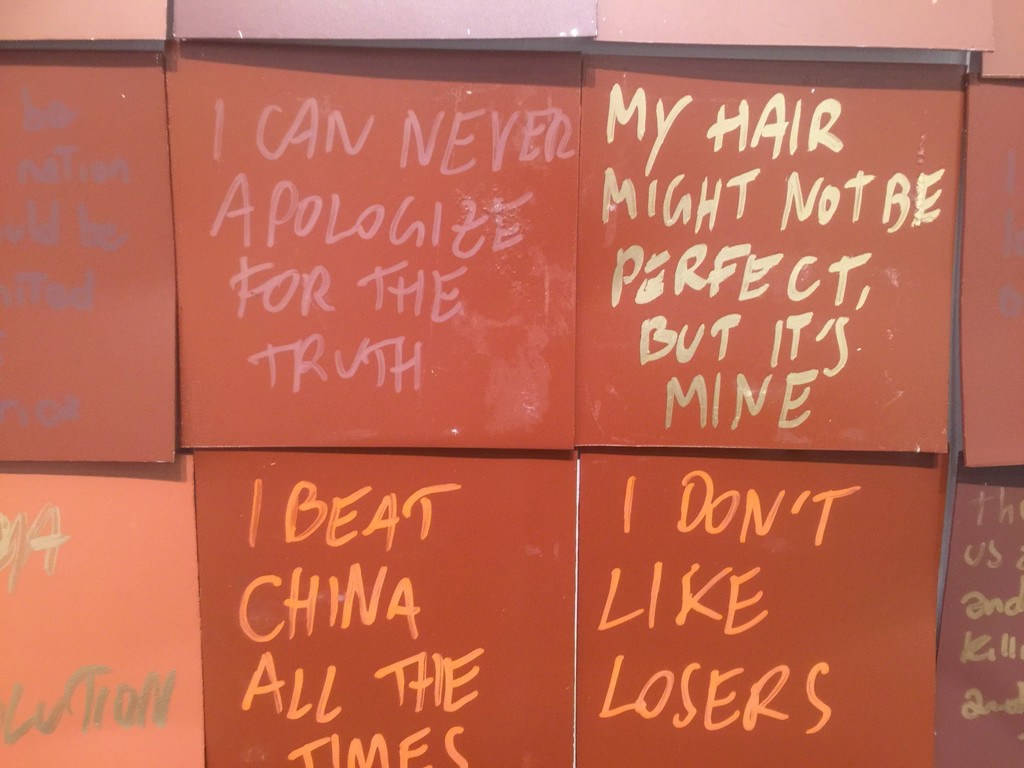 be
nation
be
I CAN NEVER
APOLOGIZE
FOR THE
TRUTH
MY HAIR
MIGHT NOT BE
PERFECT,
BUT IT'S
MINE
I BEAT
CHINA
ALL THE
TIMES
I DON'T
LIKE
LOSERS
us
and
and